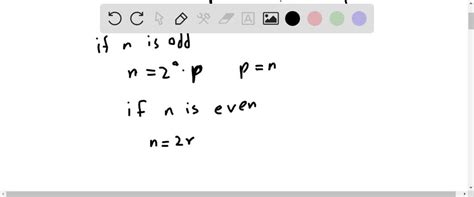 if n is odd
n = 2⁰ · p    p = n
if n is even
n = 2r